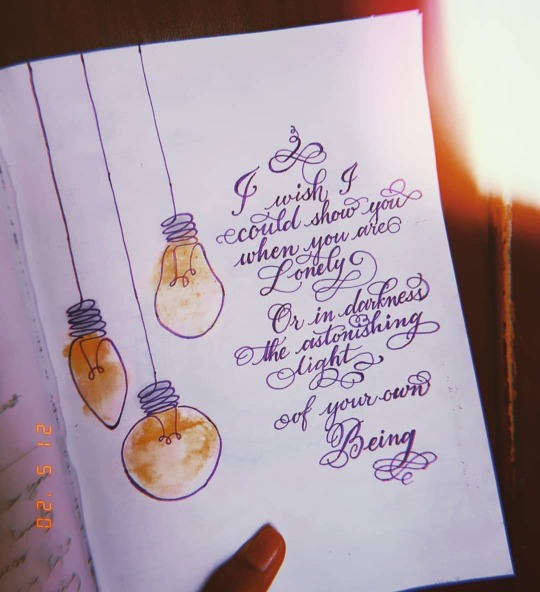 I wish I
could show you
when you are
Lonely
Or in darkness
the astonishing
light
of your own
Being
02. 5 12